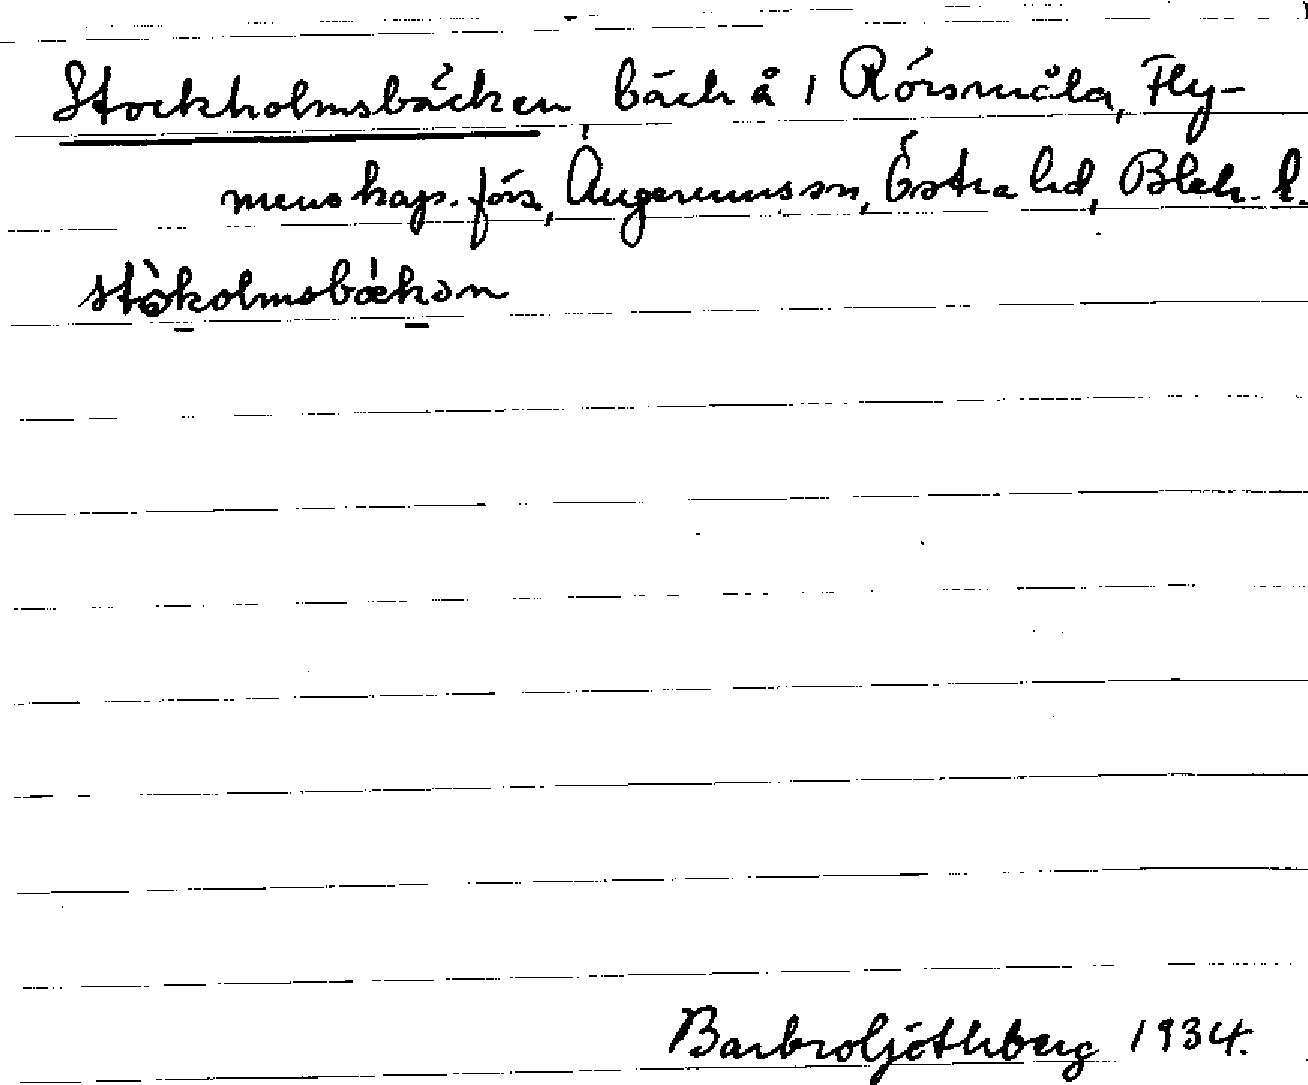 Stockholmsbäcken, bäck å 1 Rörsmåla, Fly-
mens kap. förs, Augerumssn, Östra hd, Blek. l.
stòkolmsbækən
Barbro Ljöthberg 1934.